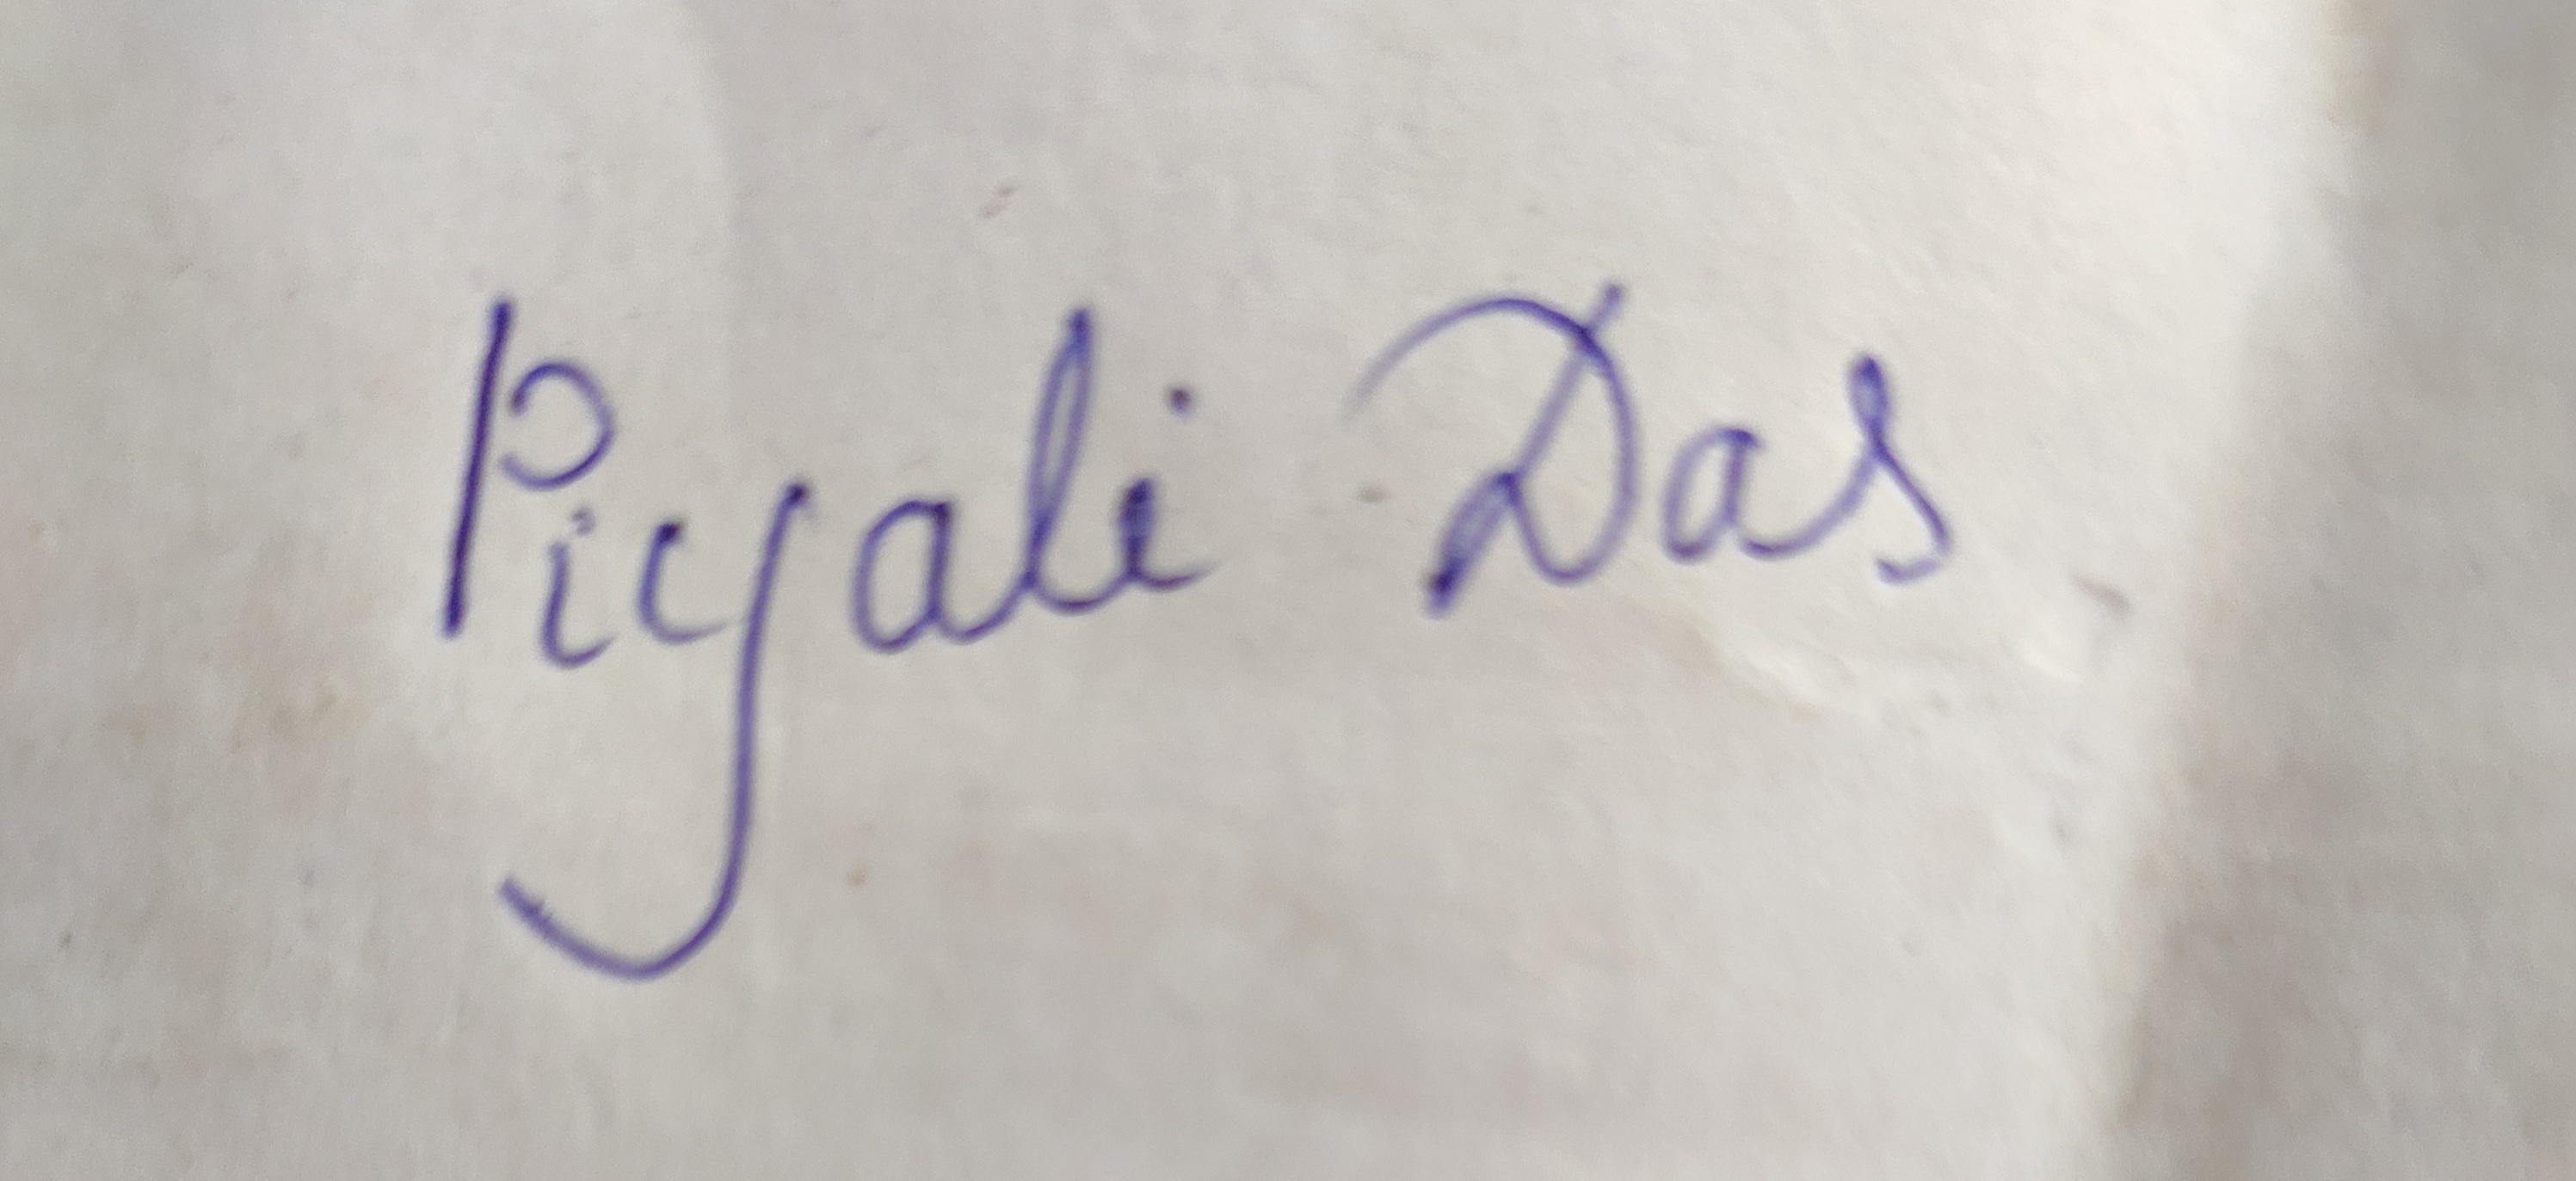 Piyali Das